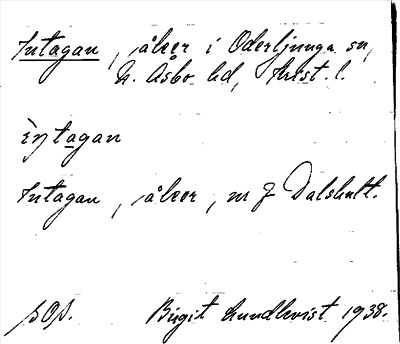 Intagan, åker i Oderljunga sn,
N. Åsbo hd, Krist. l.
Intagan, åker, nr 7 Dalshult.
sOp. Birgit Lundkvist 1938.